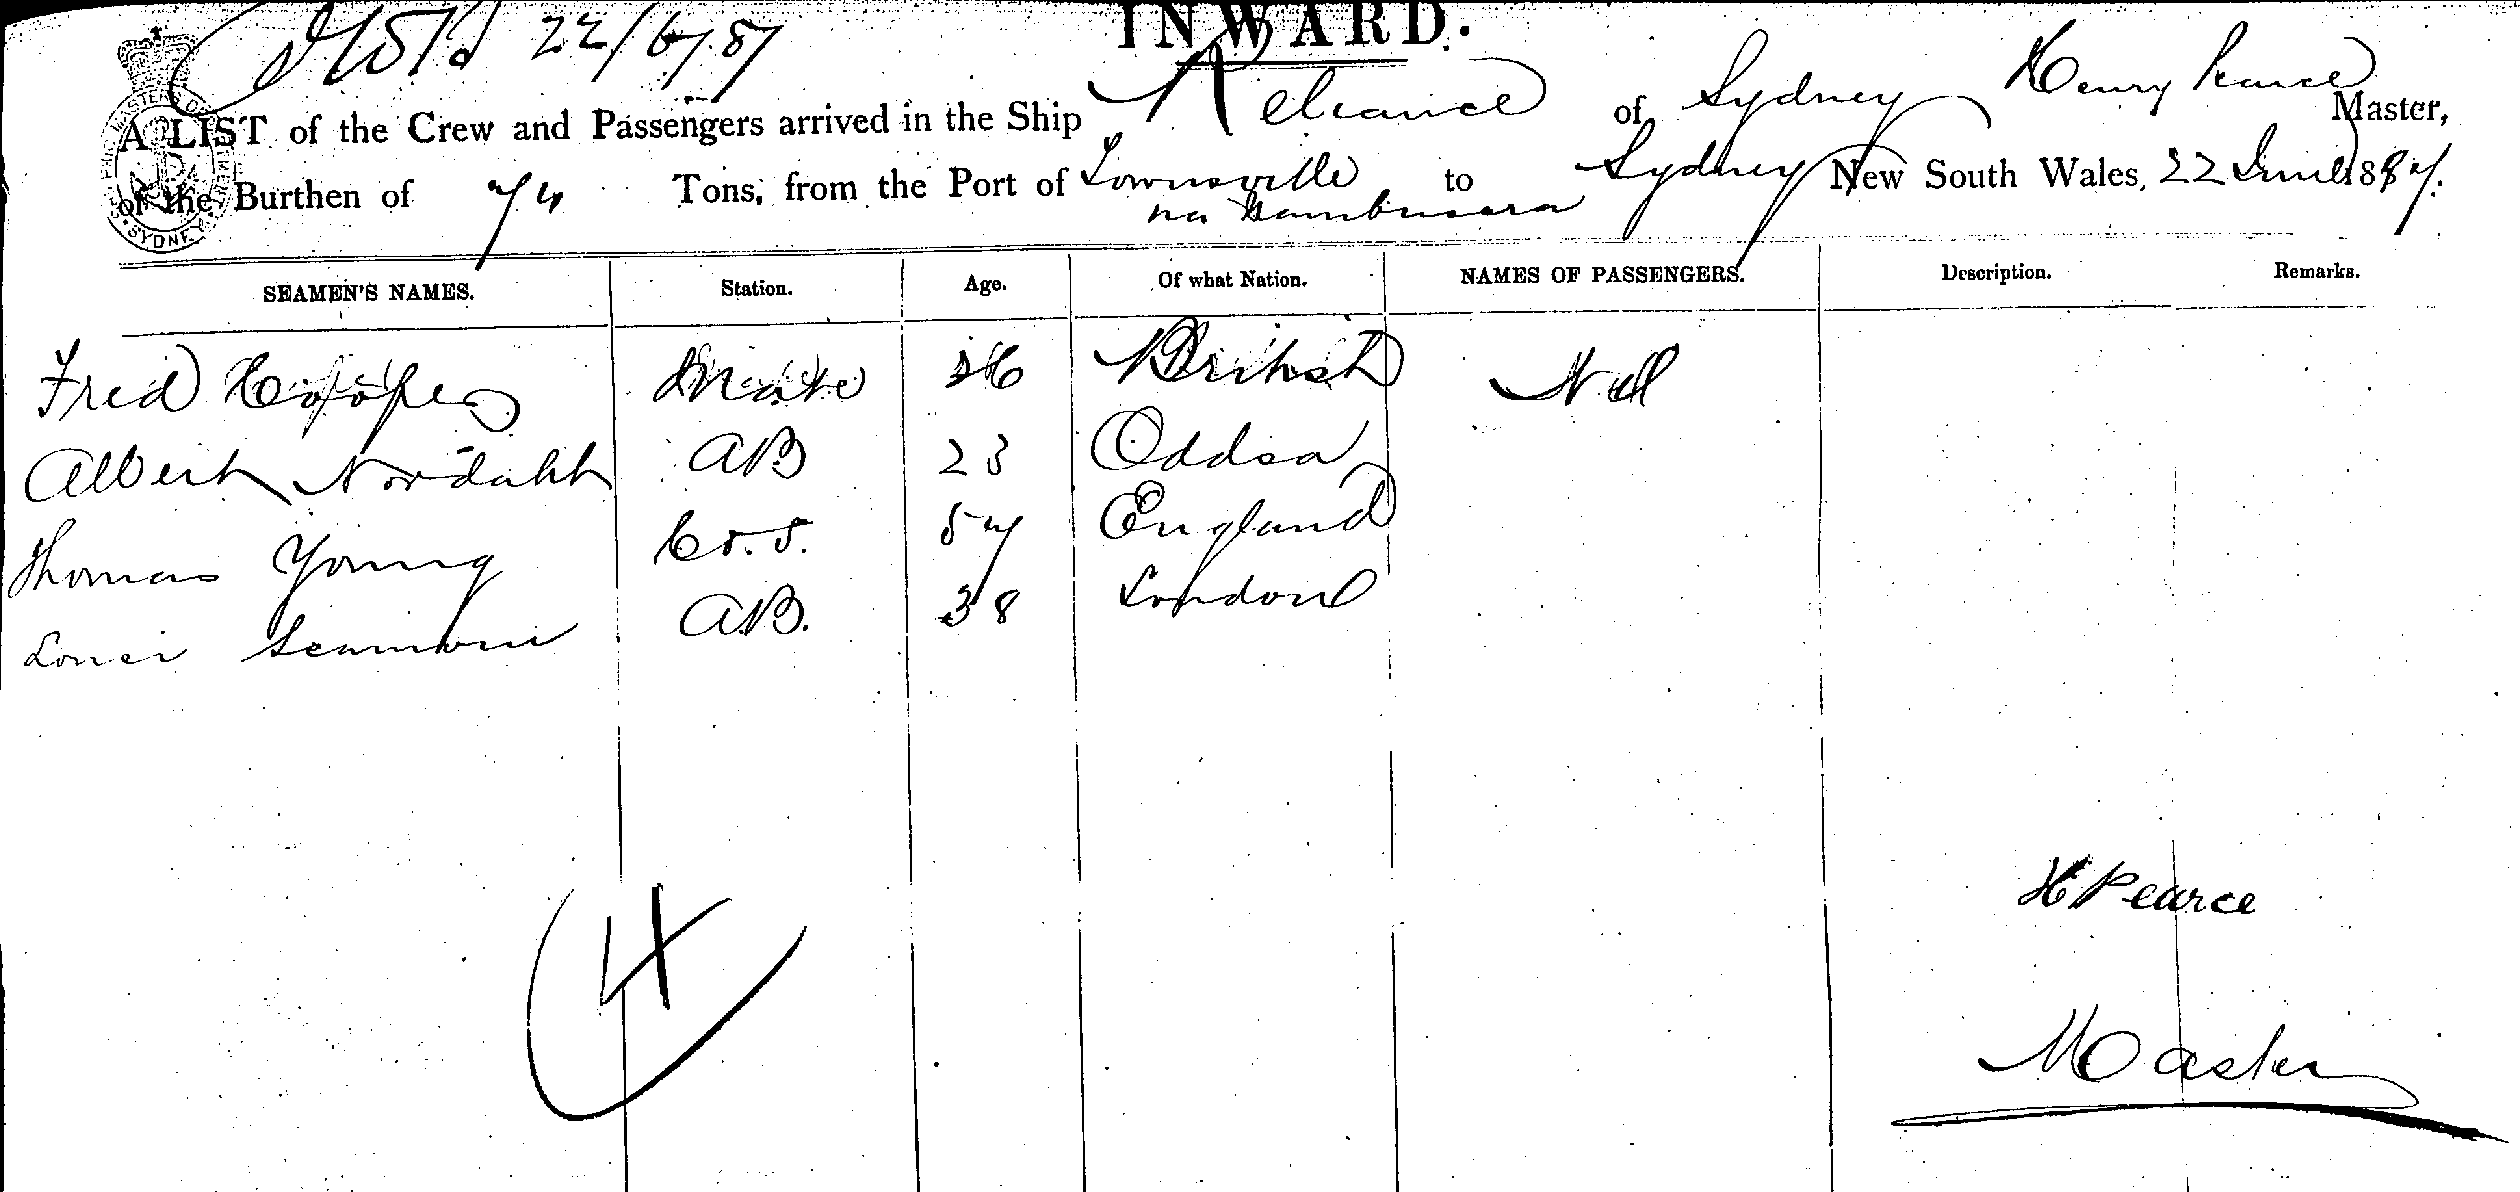 22/6/87
INWARD.
A LIST of the Crew and Passengers arrived in the Ship Reliance of Sydney Henry Pearce Master,
of the Burthen of 74 Tons, from the Port of Townsville to Sydney New South Wales, 22 June 1887.
SEAMEN'S NAMES. Station. Age. Of what Nation. NAMES OF PASSENGERS. Description. Remarks.
Fred Mate British Nil
Albert Nordahl AB 23 Oddsa
Thomas Young 57 England
AB. 38 London
4
H Pearce
Master